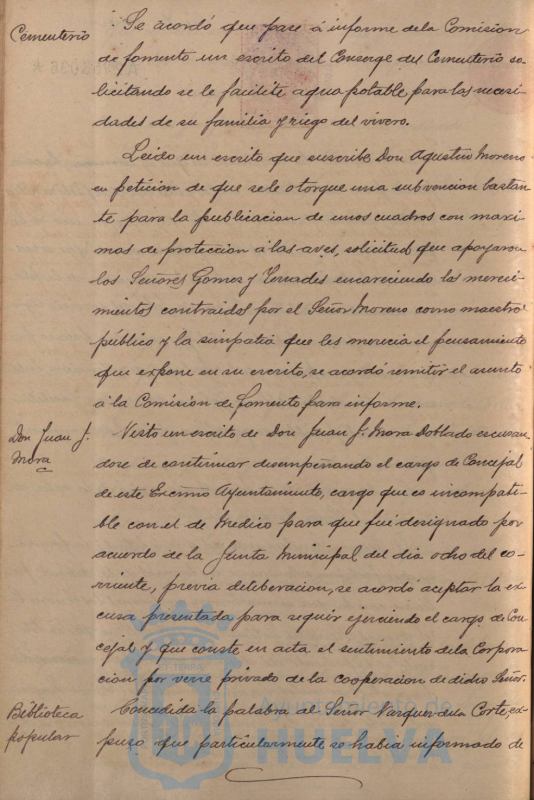 Cementerio
Se acordó que pase á informe de la Comision
de fomento un escrito del Conserge del Cementerio so-
licitando se le facilite agua potable, para las necesi-
dades de su familia y riego del vivero.
Leido un escrito que suscribe Don Agustin Moreno
en peticion de que se le otorgue una subvencion bastan-
te para la publicacion de unos cuadros con maxi-
mas de proteccion á las aves, solicitud que apoyaron
los Señores Gomez y Terrades encareciendo los mereci-
mientos contraidos por el Señor Moreno como maestro
público y la simpatia que les merecia el pensamiento
que expone en su escrito, se acordó remitir el asunto
á la Comision de fomento para informe.
Don Juan J.
Mora
Visto un escrito de Don Juan J. Mora Doblado escusan-
dose de continuar desempeñando el cargo de Concejal
de este Excmo Ayuntamiento, cargo que es incompati-
ble con el de Medico para que fué designado por
acuerdo de la Junta Municipal del dia ocho del co-
rriente, previa deliberacion, se acordó aceptar la ex-
cusa presentada para seguir ejerciendo el cargo de Con-
cejal y que conste en acta el sentimiento de la Corpora-
cion por verse privado de la cooperacion de dicho Señor.
Biblioteca
popular
Concedida la palabra al Señor Vazquez de la Corte, ex-
puso que particularmente se habia informado de
Ayuntamiento de
HUELVA